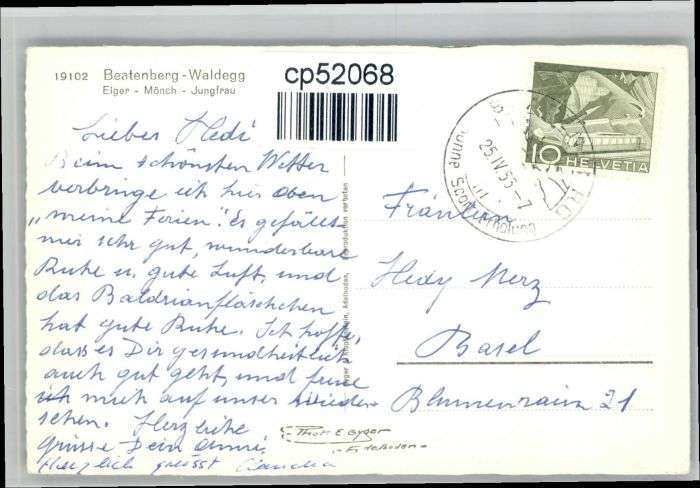 19102 Beatenberg - Waldegg
Eiger - Mönch - Jungfrau
cp52068
10 HELVETIA
25.IV.55-7
Sonne Sport Erholung
Lieber Hedi
Beim schönsten Wetter
verbringe ich hier oben
„meine Ferien". Es gefällt
mir sehr gut, wunderbare
Ruhe u. gute Luft, und
das Baldrianfläschchen
hat gute Ruhe. Ich hoffe,
dass es Dir gesundheitlich
auch gut geht, und freue
ich mich auf unser wieder-
sehen. Herzliche
Grüsse Dein
Herzlich grüsst Claudia
Reproduktion verboten
Adelboden,
Fräulein
Hedy Merz
Basel
Blumenrain 21
Phot. E. Gyger
Adelboden